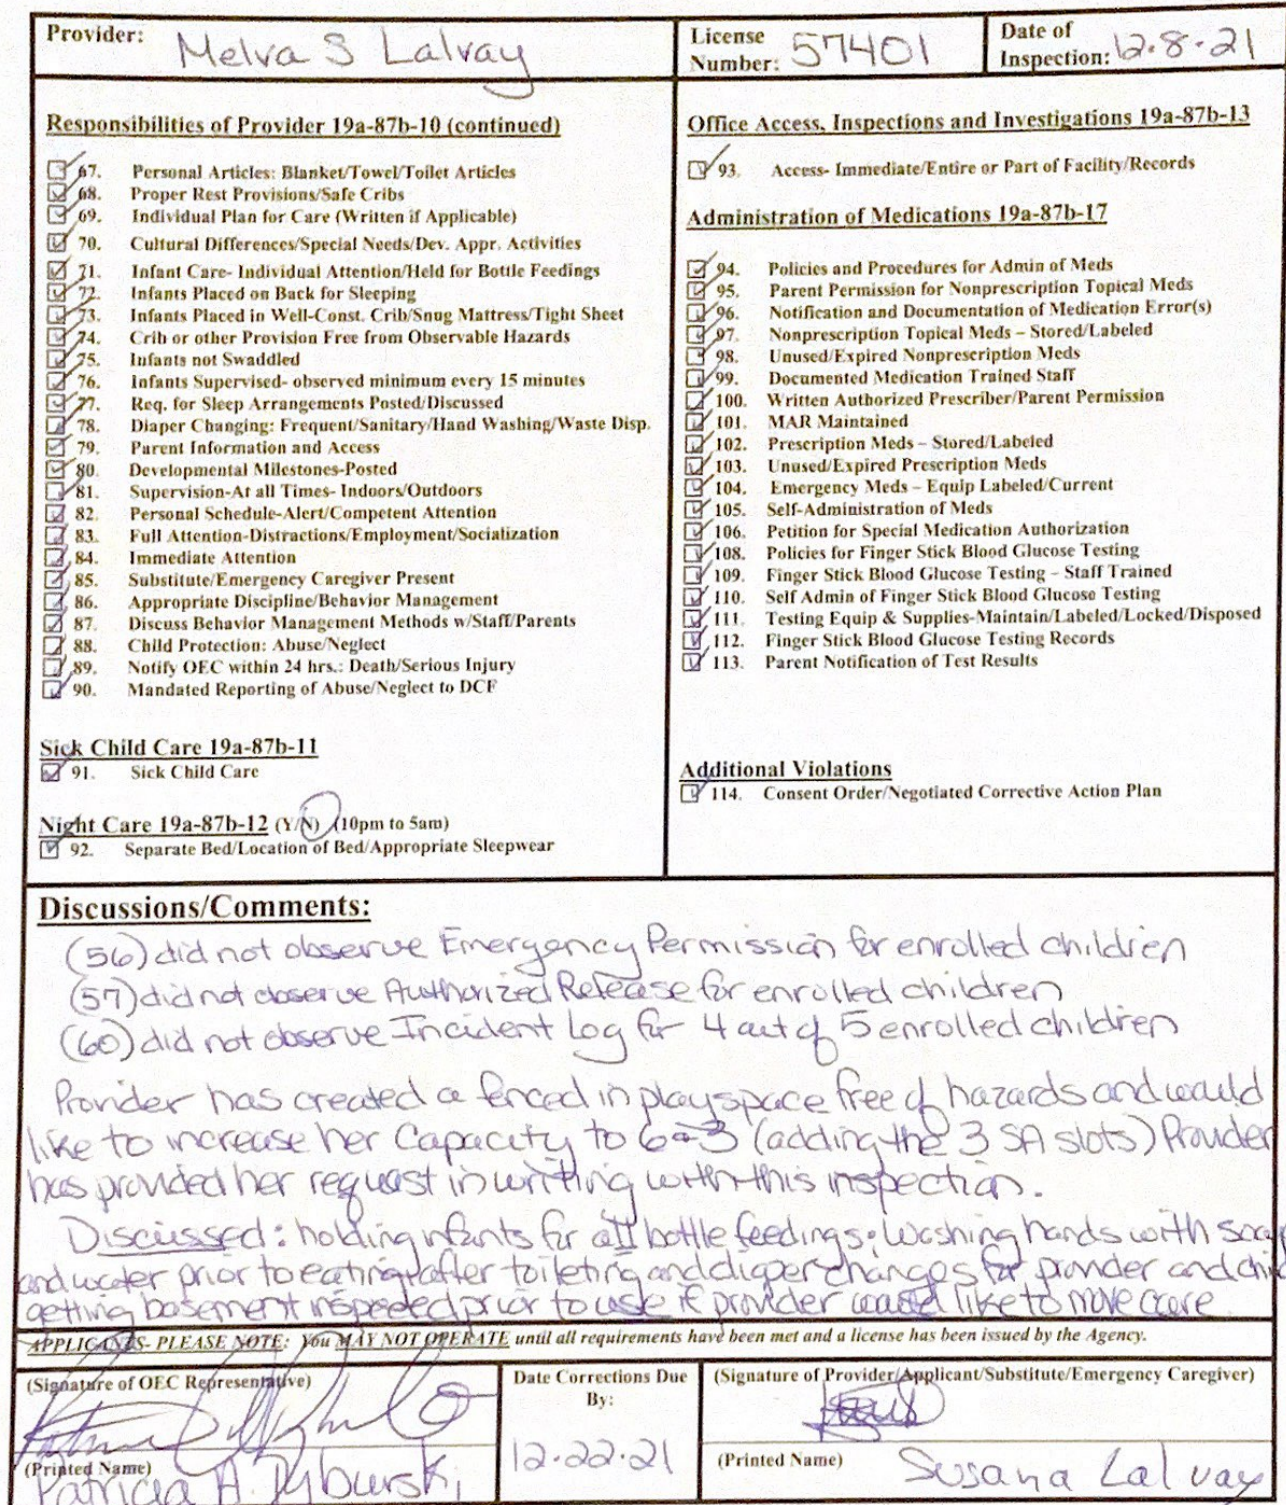 Provider: Melva S Lalvay
License Number: 57401
Date of Inspection: 12.8.21
Responsibilities of Provider 19a-87b-10 (continued)
67. Personal Articles: Blanket/Towel/Toilet Articles
68. Proper Rest Provisions/Safe Cribs
69. Individual Plan for Care (Written if Applicable)
70. Cultural Differences/Special Needs/Dev. Appr. Activities
71. Infant Care- Individual Attention/Held for Bottle Feedings
72. Infants Placed on Back for Sleeping
73. Infants Placed in Well-Const. Crib/Snug Mattress/Tight Sheet
74. Crib or other Provision Free from Observable Hazards
75. Infants not Swaddled
76. Infants Supervised- observed minimum every 15 minutes
77. Req. for Sleep Arrangements Posted/Discussed
78. Diaper Changing: Frequent/Sanitary/Hand Washing/Waste Disp.
79. Parent Information and Access
80. Developmental Milestones-Posted
81. Supervision-At all Times- Indoors/Outdoors
82. Personal Schedule-Alert/Competent Attention
83. Full Attention-Distractions/Employment/Socialization
84. Immediate Attention
85. Substitute/Emergency Caregiver Present
86. Appropriate Discipline/Behavior Management
87. Discuss Behavior Management Methods w/Staff/Parents
88. Child Protection: Abuse/Neglect
89. Notify OEC within 24 hrs.: Death/Serious Injury
90. Mandated Reporting of Abuse/Neglect to DCF
Sick Child Care 19a-87b-11
91. Sick Child Care
Night Care 19a-87b-12 (Y/N) (10pm to 5am)
92. Separate Bed/Location of Bed/Appropriate Sleepwear
Office Access, Inspections and Investigations 19a-87b-13
93. Access- Immediate/Entire or Part of Facility/Records
Administration of Medications 19a-87b-17
94. Policies and Procedures for Admin of Meds
95. Parent Permission for Nonprescription Topical Meds
96. Notification and Documentation of Medication Error(s)
97. Nonprescription Topical Meds – Stored/Labeled
98. Unused/Expired Nonprescription Meds
99. Documented Medication Trained Staff
100. Written Authorized Prescriber/Parent Permission
101. MAR Maintained
102. Prescription Meds – Stored/Labeled
103. Unused/Expired Prescription Meds
104. Emergency Meds – Equip Labeled/Current
105. Self-Administration of Meds
106. Petition for Special Medication Authorization
108. Policies for Finger Stick Blood Glucose Testing
109. Finger Stick Blood Glucose Testing – Staff Trained
110. Self Admin of Finger Stick Blood Glucose Testing
111. Testing Equip & Supplies-Maintain/Labeled/Locked/Disposed
112. Finger Stick Blood Glucose Testing Records
113. Parent Notification of Test Results
Additional Violations
114. Consent Order/Negotiated Corrective Action Plan
Discussions/Comments:
(56) did not observe Emergency Permission for enrolled children
(57) did not observe Authorized Release for enrolled children
(60) did not observe Incident Log for 4 out of 5 enrolled children
Provider has created a fenced in play space free of hazards and would
like to increase her Capacity to 6+3 (adding the 3 SA slots) Provider
has provided her request in writing with this inspection.
Discussed: holding infants for all bottle feedings; Washing hands with soap
and water prior to eating + after toileting and diaper changes for provider and
getting basement inspected prior to use if provider would like to move care
APPLICANTS- PLEASE NOTE: You MAY NOT OPERATE until all requirements have been met and a license has been issued by the Agency.
(Signature of OEC Representative)
(Printed Name) Patricia A. Dyburski
Date Corrections Due By:
12.22.21
(Signature of Provider/Applicant/Substitute/Emergency Caregiver)
(Printed Name) Susana Lalvay